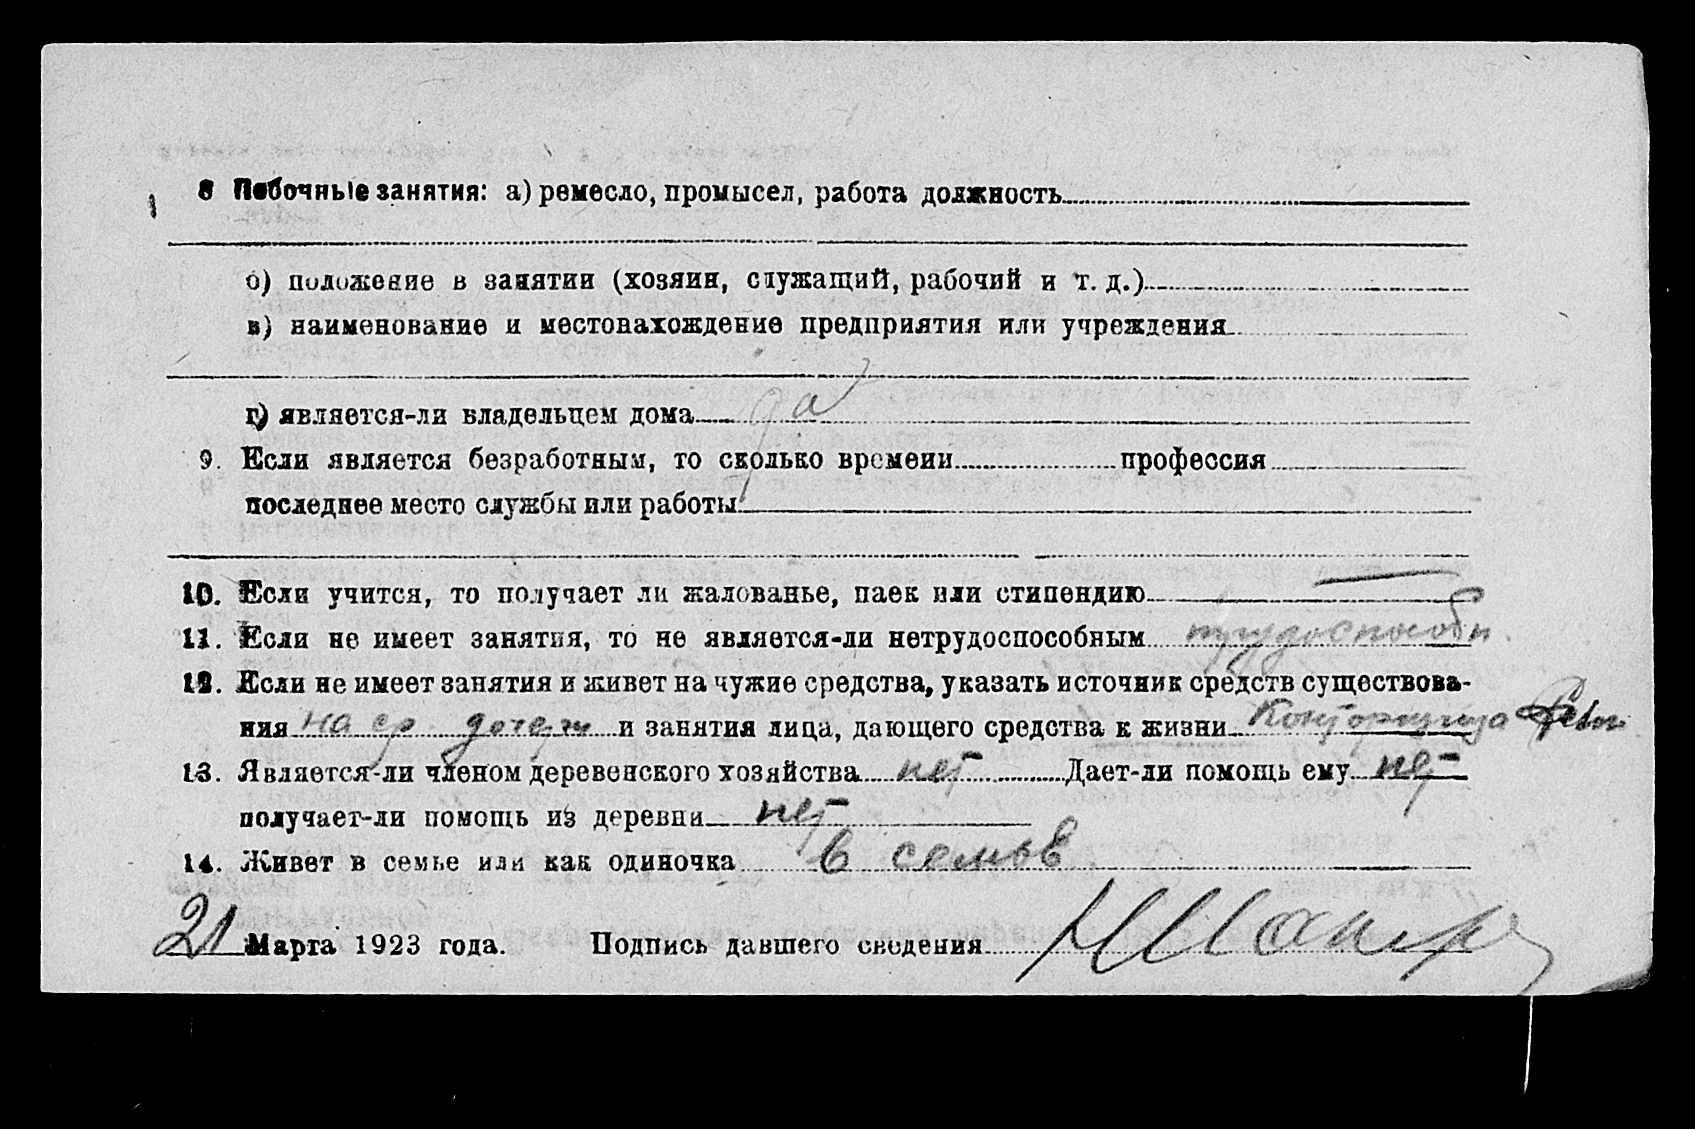 8 Побочные занятия: а) ремесло, промысел, работа должность
б) положение в занятии (хозяин, служащий, рабочий и т. д.)
в) наименование и местонахождение предприятия или учреждения
г) является-ли владельцем дома да
9. Если является безработным, то сколько времени профессия
последнее место службы или работы
10. Если учится, то получает ли жалованье, паек или стипендию —
11. Если не имеет занятия, то не является-ли нетрудоспособным трудоспособн.
12. Если не имеет занятия и живет на чужие средства, указать источник средств существова-
ния на ср. дочери и занятия лица, дающего средства к жизни Конторщица
13. Является-ли членом деревенского хозяйства нет Дает-ли помощь ему нет
получает-ли помощь из деревни нет
14. Живет в семье или как одиночка в семьѣ
21 Марта 1923 года. Подпись давшего сведения